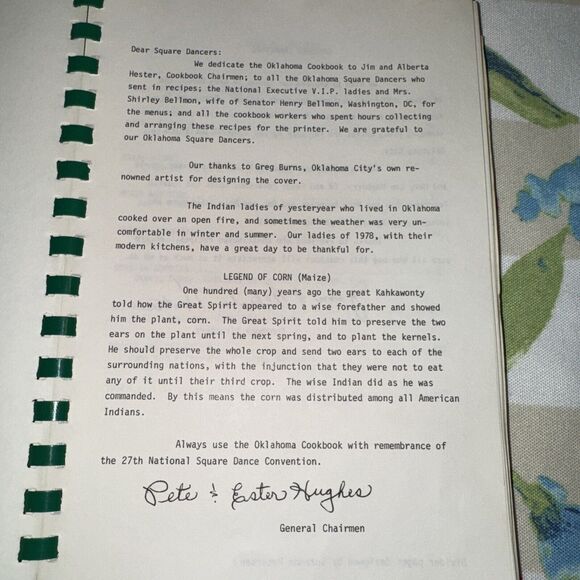 Dear Square Dancers:
We dedicate the Oklahoma Cookbook to Jim and Alberta
Hester, Cookbook Chairmen; to all the Oklahoma Square Dancers who
sent in recipes; the National Executive V.I.P. ladies and Mrs.
Shirley Bellmon, wife of Senator Henry Bellmon, Washington, DC, for
the menus; and all the cookbook workers who spent hours collecting
and arranging these recipes for the printer. We are grateful to
our Oklahoma Square Dancers.
Our thanks to Greg Burns, Oklahoma City's own re-
nowned artist for designing the cover.
The Indian ladies of yesteryear who lived in Oklahoma
cooked over an open fire, and sometimes the weather was very un-
comfortable in winter and summer. Our ladies of 1978, with their
modern kitchens, have a great day to be thankful for.
LEGEND OF CORN (Maize)
One hundred (many) years ago the great Kahkawonty
told how the Great Spirit appeared to a wise forefather and showed
him the plant, corn. The Great Spirit told him to preserve the two
ears on the plant until the next spring, and to plant the kernels.
He should preserve the whole crop and send two ears to each of the
surrounding nations, with the injunction that they were not to eat
any of it until their third crop. The wise Indian did as he was
commanded. By this means the corn was distributed among all American
Indians.
Always use the Oklahoma Cookbook with remembrance of
the 27th National Square Dance Convention.
Pete & Ester Hughes
General Chairmen